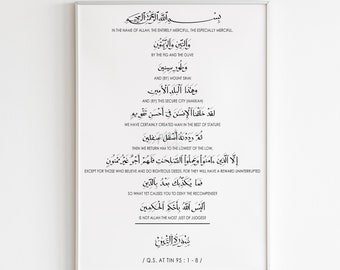 بِسْمِ اللَّهِ الرَّحْمَٰنِ الرَّحِيمِ
IN THE NAME OF ALLAH, THE ENTIRELY MERCIFUL, THE ESPECIALLY MERCIFUL.
وَالتِّينِ وَالزَّيْتُونِ
BY THE FIG AND THE OLIVE
وَطُورِ سِينِينَ
AND (BY) MOUNT SINAI
وَهَٰذَا الْبَلَدِ الْأَمِينِ
AND (BY) THIS SECURE CITY (MAKKAH),
لَقَدْ خَلَقْنَا الْإِنسَانَ فِي أَحْسَنِ تَقْوِيمٍ
WE HAVE CERTAINLY CREATED MAN IN THE BEST OF STATURE
ثُمَّ رَدَدْنَاهُ أَسْفَلَ سَافِلِينَ
THEN WE RETURN HIM TO THE LOWEST OF THE LOW,
إِلَّا الَّذِينَ آمَنُوا وَعَمِلُوا الصَّالِحَاتِ فَلَهُمْ أَجْرٌ غَيْرُ مَمْنُونٍ
EXCEPT FOR THOSE WHO BELIEVE AND DO RIGHTEOUS DEEDS, FOR THEY WILL HAVE A REWARD UNINTERRUPTED
فَمَا يُكَذِّبُكَ بَعْدُ بِالدِّينِ
SO WHAT YET CAUSES YOU TO DENY THE RECOMPENSE?
أَلَيْسَ اللَّهُ بِأَحْكَمِ الْحَاكِمِينَ
IS NOT ALLAH THE MOST JUST OF JUDGES?
سُورَةُ التِّينِ
/ Q.S. AT TIN 95 : 1 - 8 /